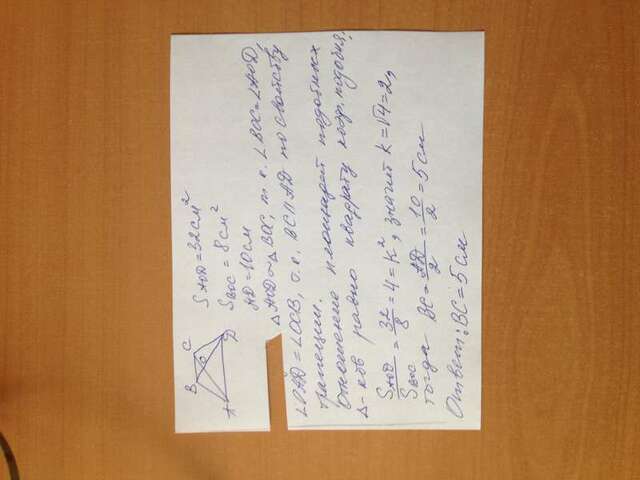 B C
O
A D
S AOD = 32 см²
S BOC = 8 см²
AD = 10 см
△ AOD ∾ △ BOC, т.к. ∠BOC = ∠AOD,
∠OAD = ∠OCB, т.к. BC || AD по свойству
трапеции.
Отношение площадей подобных
△-ков равно квадрату коэф. подобия,
S AOD / S BOC = 32/8 = 4 = k², значит k = √4 = 2,
тогда BC = AD/2 = 10/2 = 5 см
Ответ: BC = 5 см